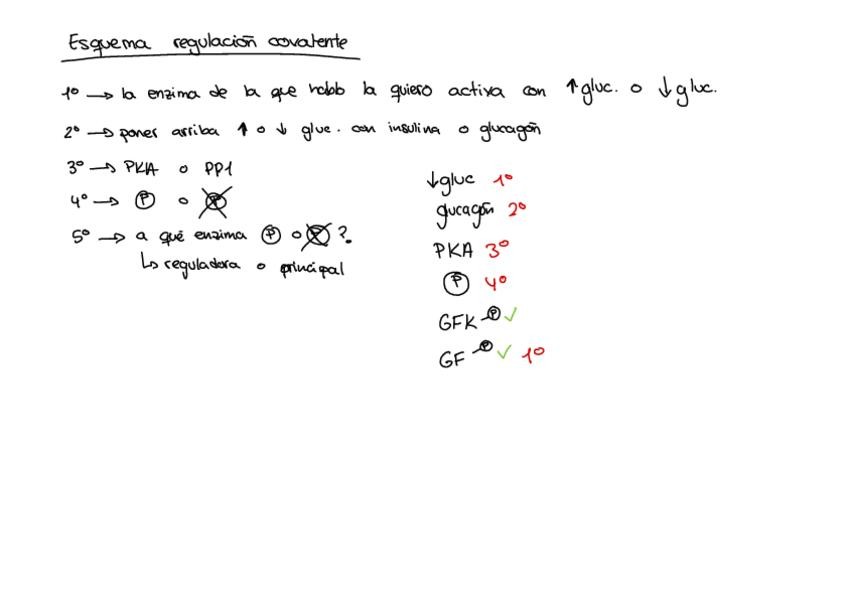 Esquema regulación covalente
1º → la enzima de la que hablo la quiero activa con ↑gluc. o ↓gluc.
2º → poner arriba ↑ o ↓ gluc. con insulina o glucagón
3º → PKA o PP1
4º → Ⓟ o Ⓟ
5º → a qué enzima Ⓟ o Ⓟ?
↳ reguladora o principal
↓gluc 1º
glucagón 2º
PKA 3º
Ⓟ 4º
GFK-Ⓟ ✓
GF-Ⓟ ✓ 1º